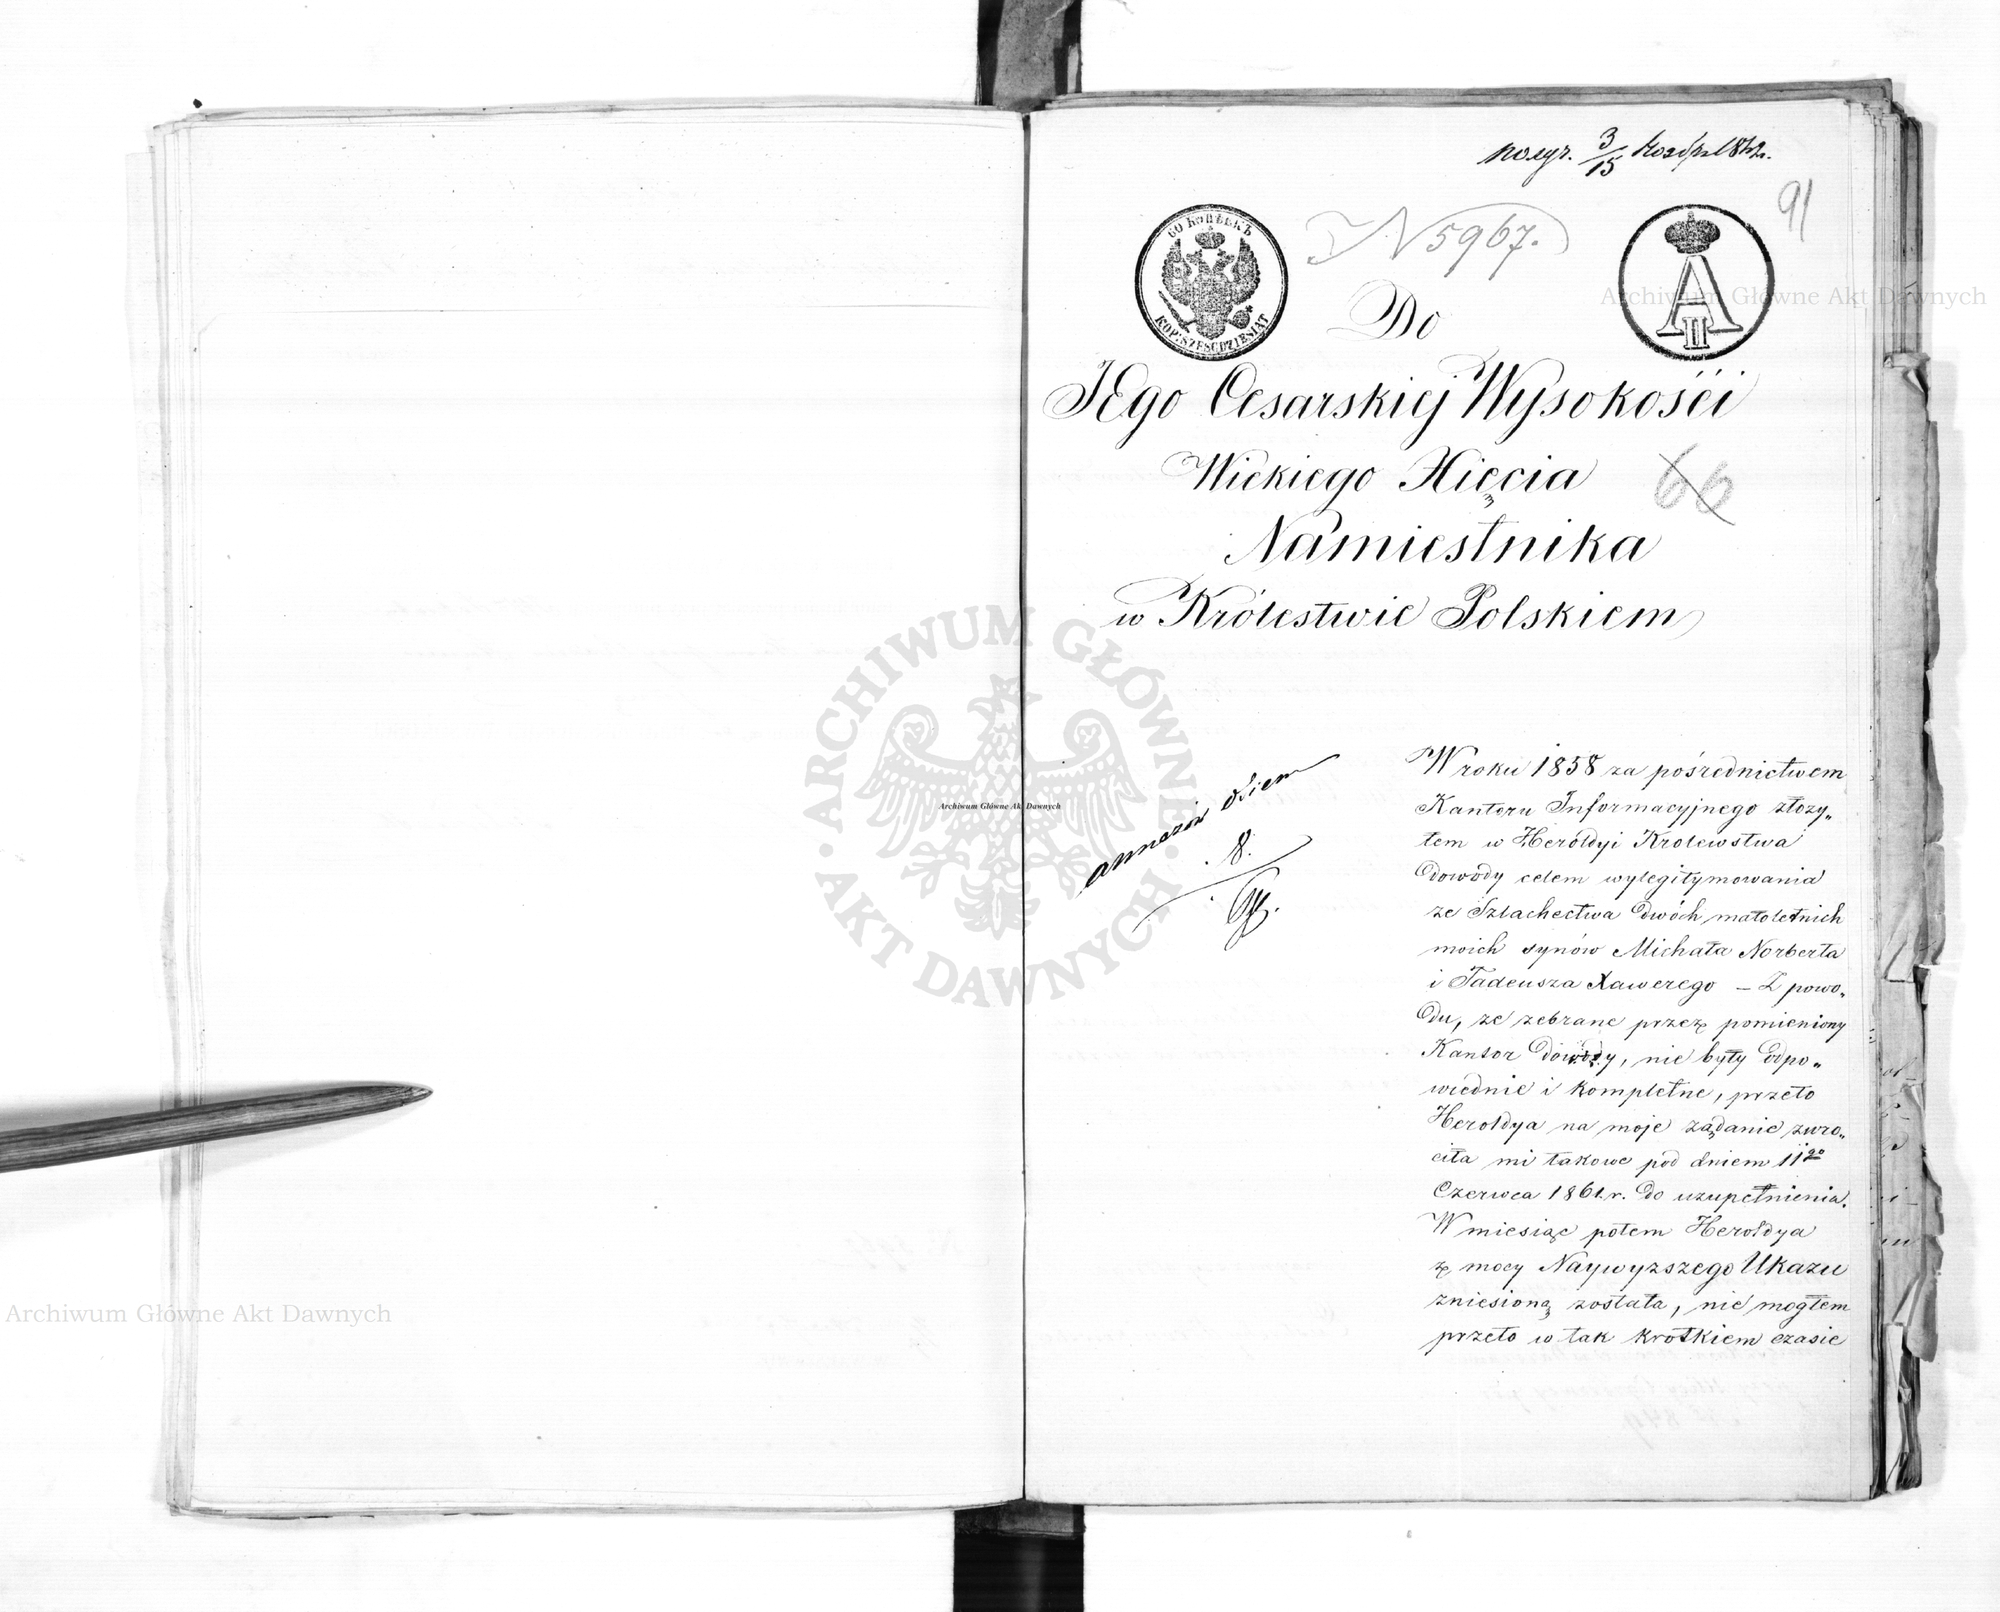 получ. 3/15
91
60 КОПѢЕКЪ
KOP: SZEŚĆDZIESIĄT
N 5967.
A II
Do
JEgo Cesarskiej Wysokośći
Wielkiego Xięcia
66
Namiestnika
w Królestwie Polskiem
W roku 1858 za pośrednictwem
Kantoru Informacyjnego złoży„
łem w Heroldyi Krolewstwa
dowody celem wylegitymowania
ze Szlachectwa dwóch małoletnich
moich synów Michała Norberta
i Tadeusza Xawerego – Z powo„
du, ze zebrane przez pomieniony
Kantor dowody, nie były odpo„
wiednie i kompletne, przeto
Herołdya na moje ządanie zwro„
ciła mi takowe pod dniem 11go
Czerwca 1861.r. do uzupełnienia.
W miesiąc potem Herołdya
z mocy Naywyzszego Ukazu
zniesioną została, nie mogłem
przeto w tak krotkiem czasie
8.
ARCHIWUM GŁÓWNE · AKT DAWNYCH ·
Archiwum Główne Akt Dawnych
Archiwum Główne Akt Dawnych
Archiwum Główne Akt Dawnych